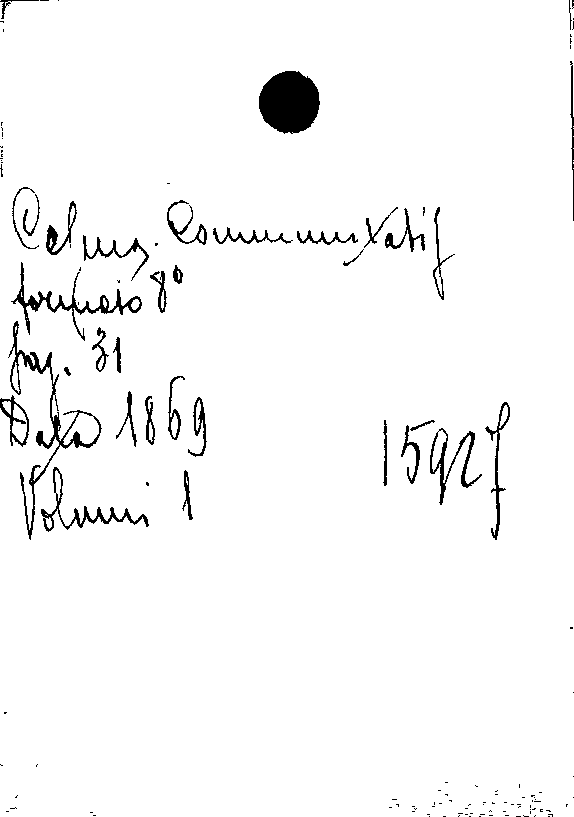 Communicatif
formato 8°
pag. 31
Data 1869
15927
Volumi 1